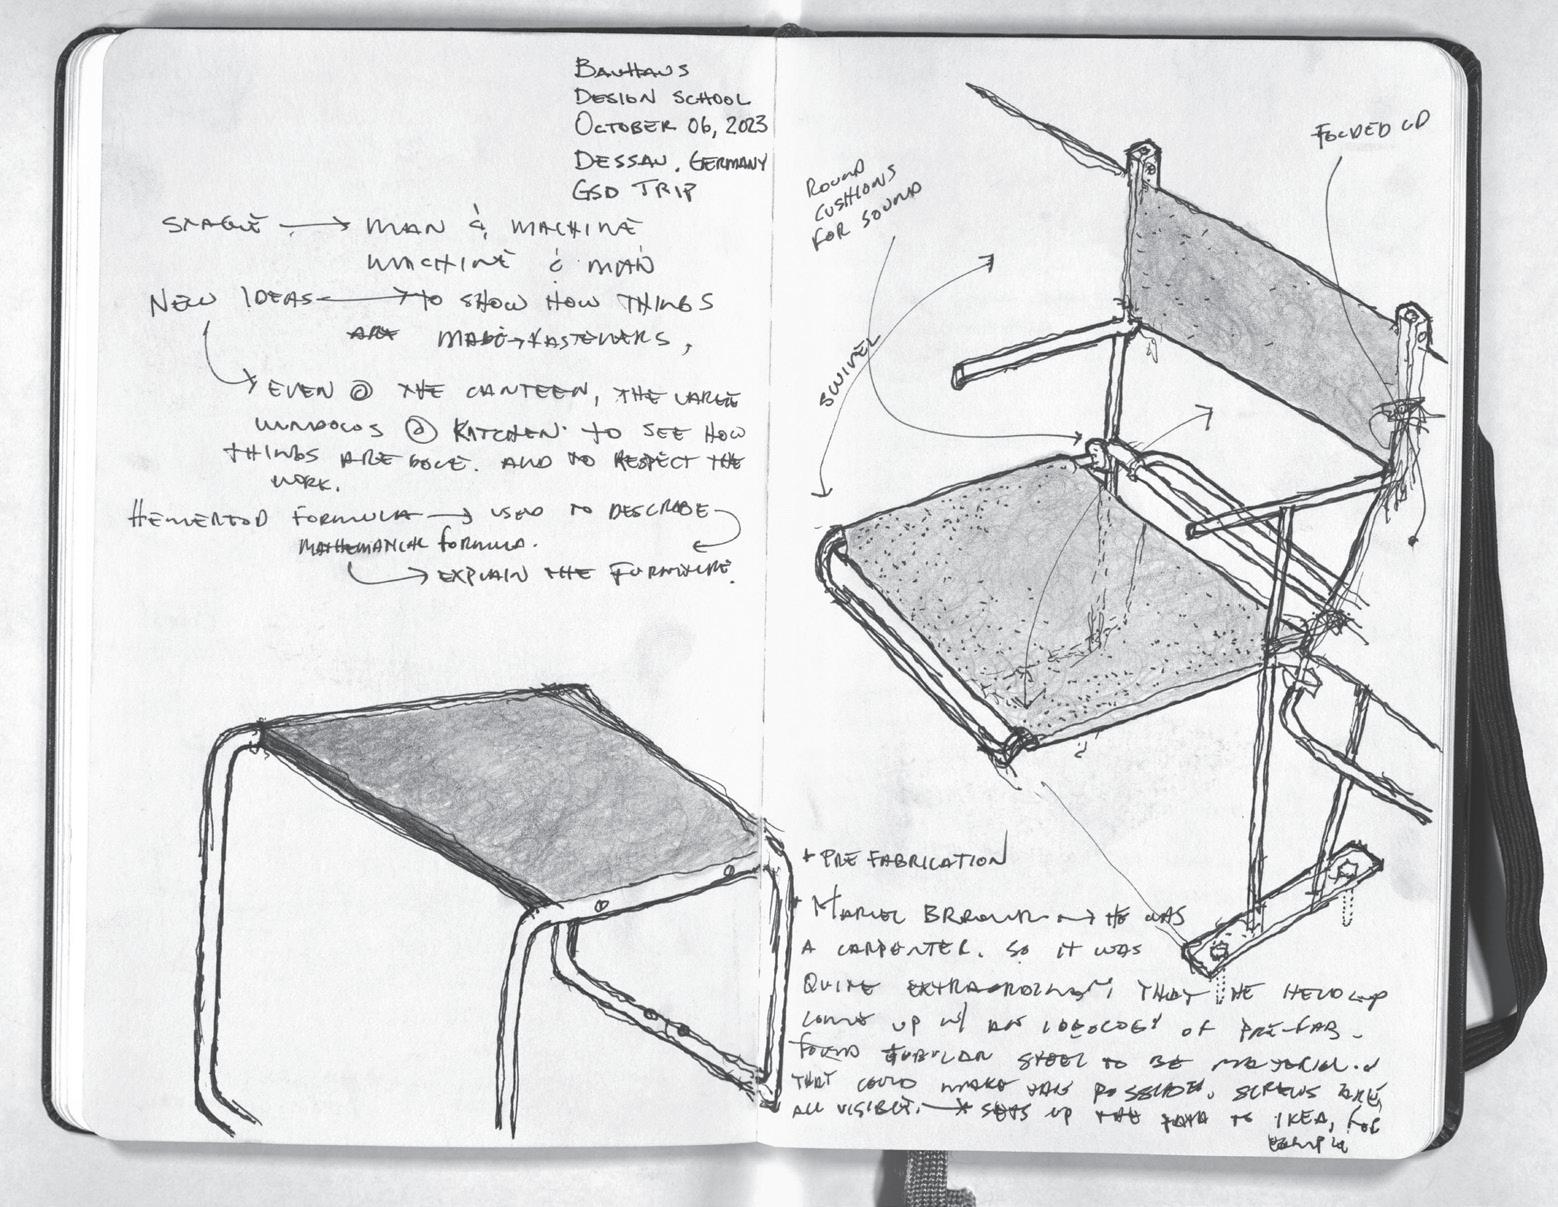 BAUHAUS
DESIGN SCHOOL
OCTOBER 06, 2023
DESSAU, GERMANY
GSD TRIP
STAGE → MAN & MACHINE
MACHINE & MAN
NEW IDEAS → TO SHOW HOW THINGS
ARE MADE → FASTENERS,
EVEN @ THE CANTEEN, THE LARGE
WINDOWS @ KITCHEN TO SEE HOW
THINGS ARE DONE. AND TO RESPECT THE
WORK.
FORMULA → USED TO DESCRIBE
MATHEMATICAL FORMULA.
EXPLAIN THE FURNITURE.
ROUND
CUSHIONS
FOR SOUND
SWIVEL
FOLDED
+ PREFABRICATION
→ HE WAS
A CARPENTER. SO IT WAS
QUITE THAT HE
COME UP W/ AN IDEOLOGY OF PRE-FAB.
FOUND TUBULAR STEEL TO BE MATERIAL
THAT COULD MAKE POSSIBLE. SCREWS ARE
ALL VISIBLE. → SETS UP THE PATH TO IKEA, FOR
EXAMPLE